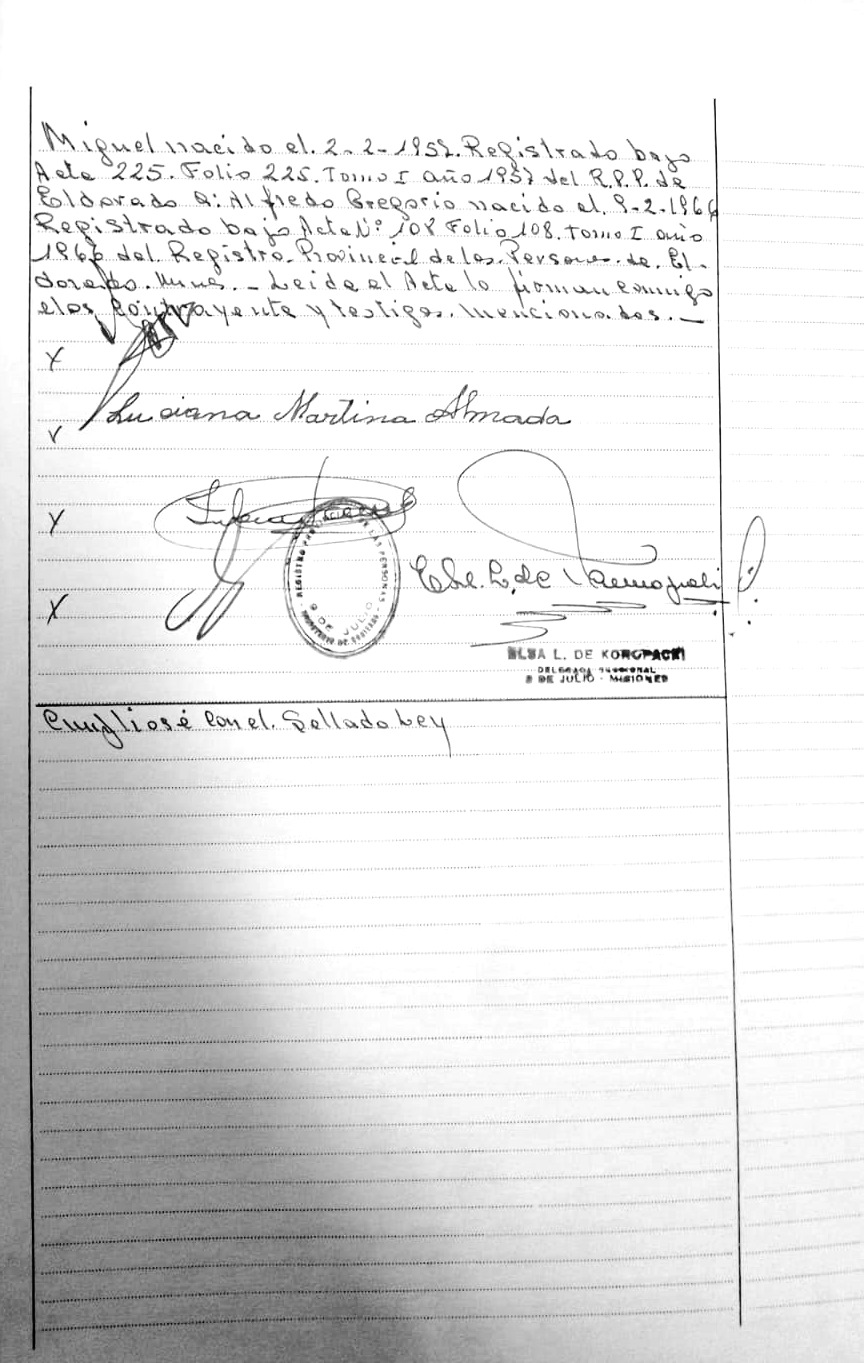 Miguel nacido el. 2-2-1957. Registrado bajo
Acta 225. Folio 225. Tomo I año 1957 del R.P.P. de
Eldorado a: Alfredo Gregorio nacido el. 9-2-1966
Registrado bajo Acta Nº 108 Folio 108. Tomo I año
1966 del Registro Provincial de las Personas de El-
dorado. Mnes. - Leida el Acta lo firman conmigo
elos contrayente y testigos. mencionados. -
X
Luciana Martina Almada
X
X
REGISTRO PROVINCIAL DE LAS PERSONAS
9 DE JULIO
X
ELSA L. DE KOROPACKI
DELEGADA SECCIONAL
9 DE JULIO - MISIONES
Con el. Sellado Ley